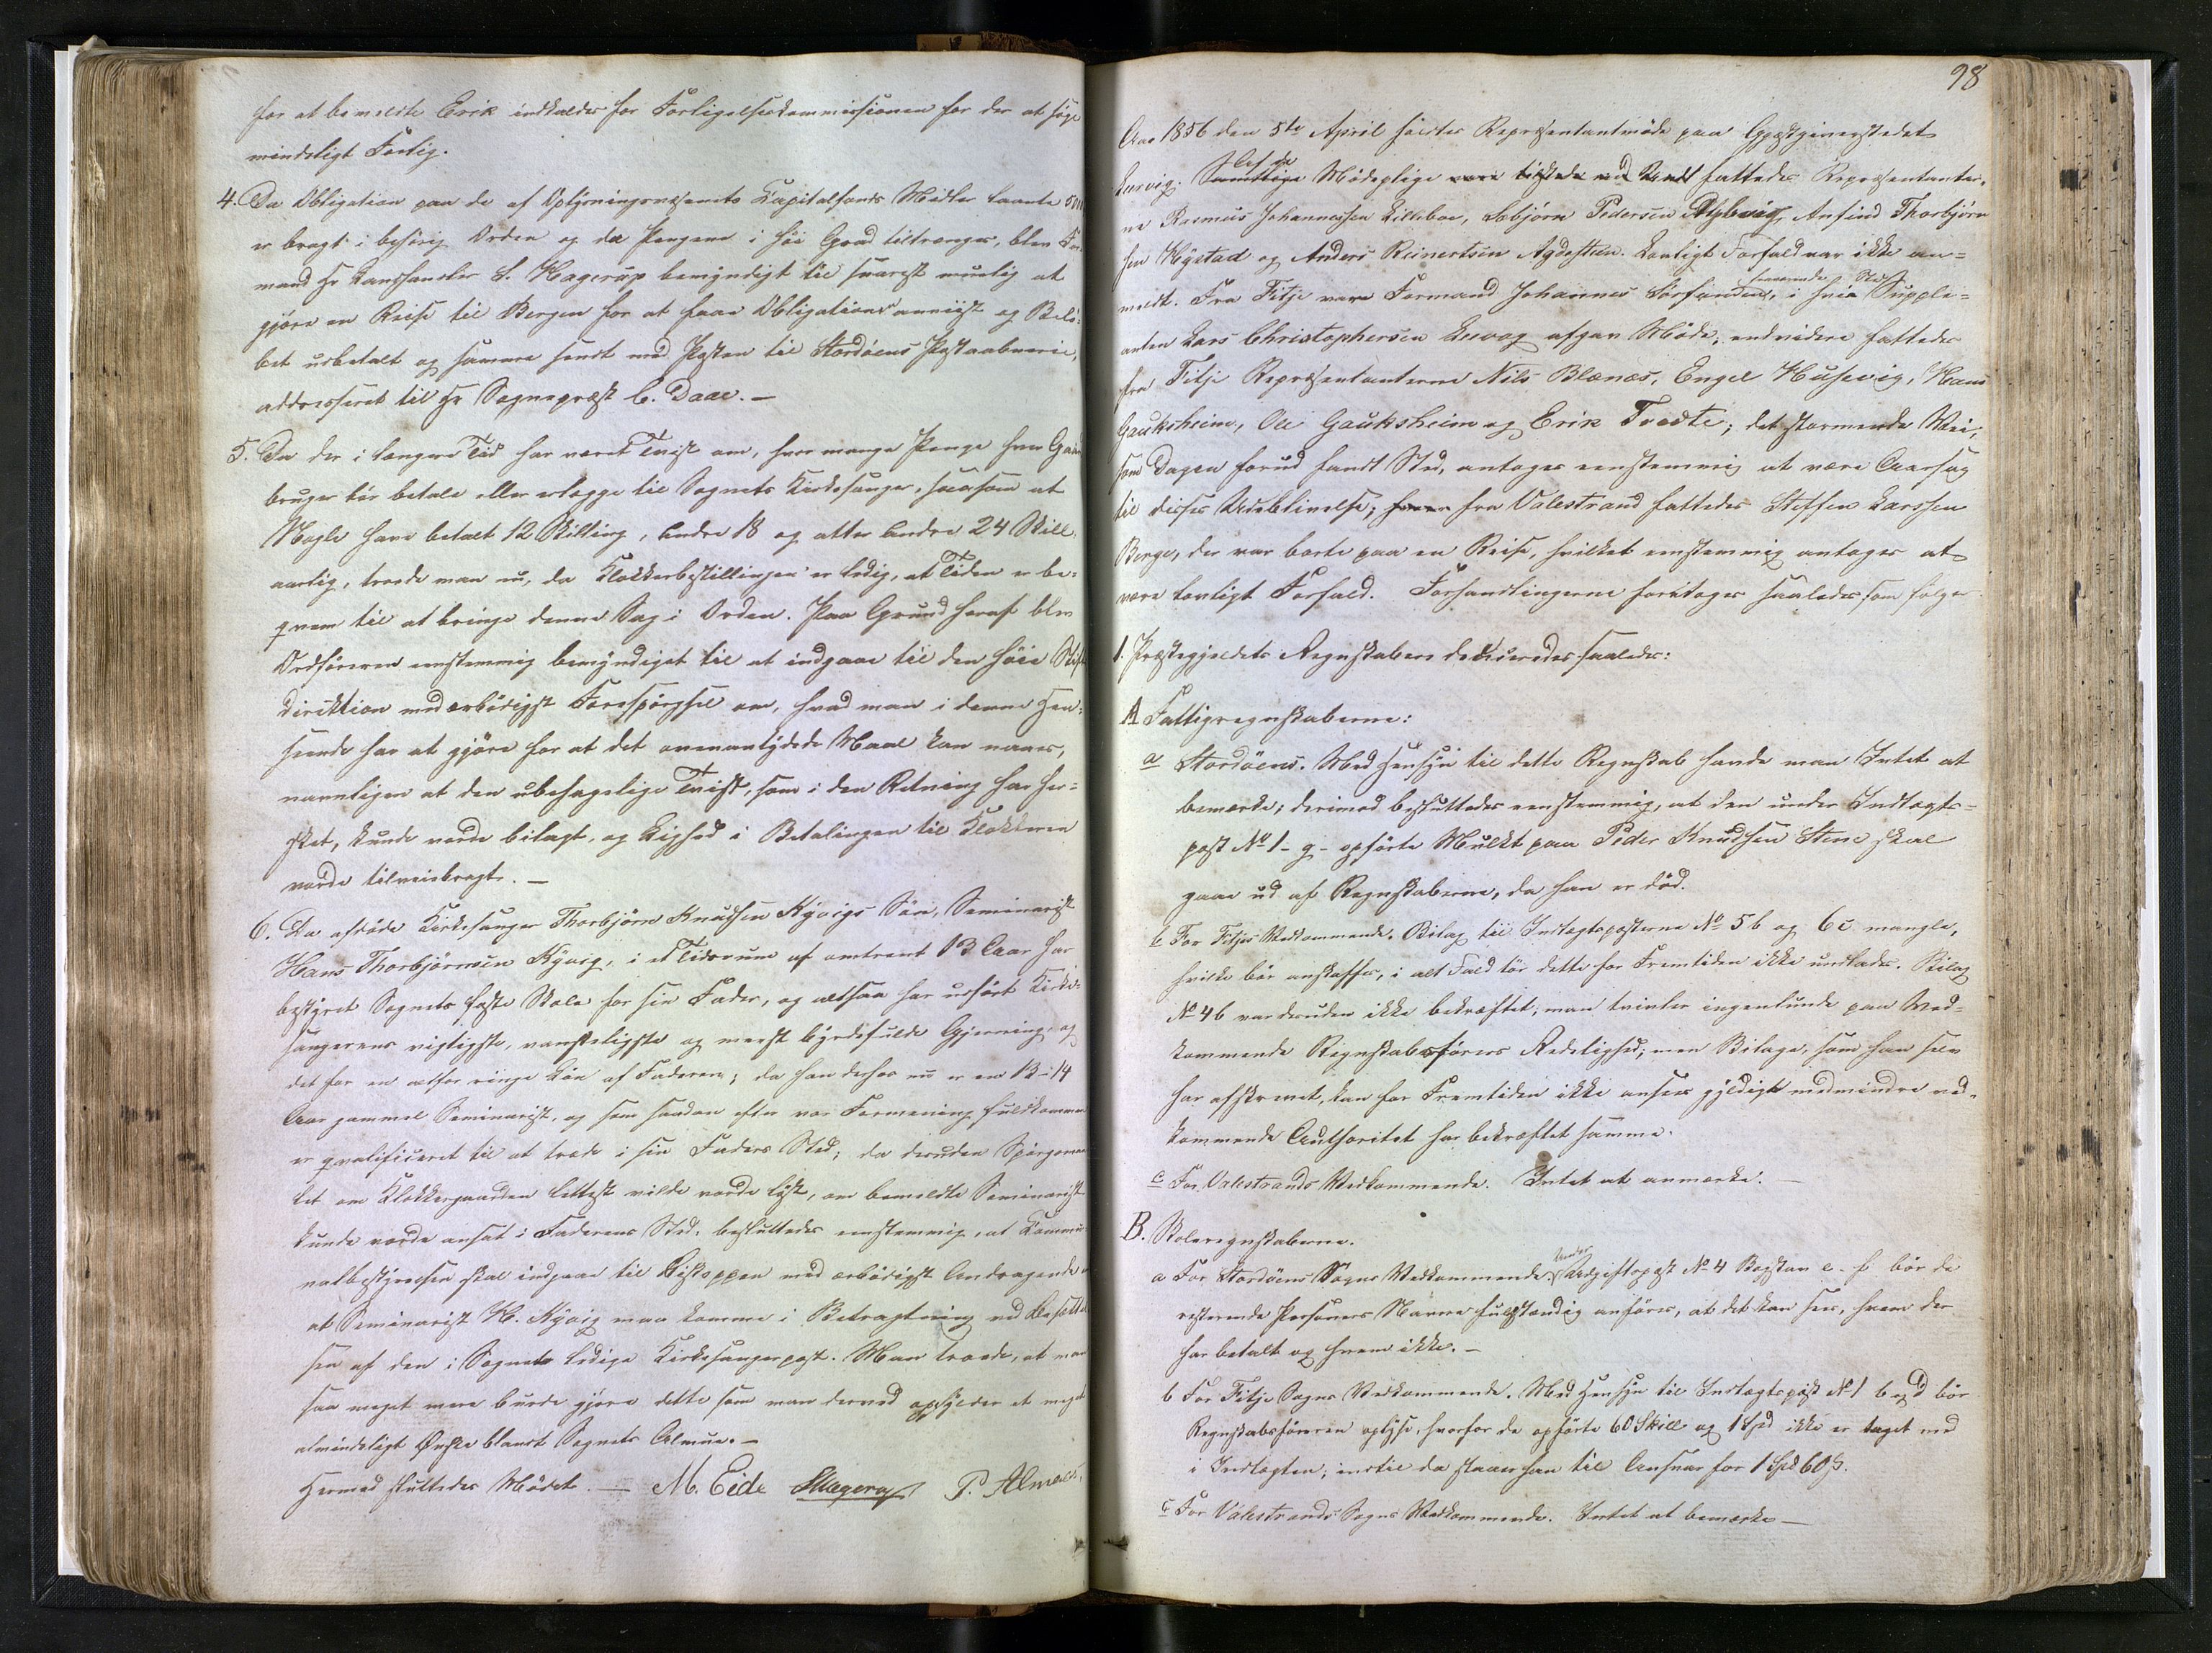 for at bemeldte Erik indkaldes for Forligelseskommissionen for der at søge
mindeligt Forlig.
4. Da Obligation paa de af Oplysningsvæsenets Kapitalfonds Midler laante
er bragt i behørig Orden og da Pengene i høi Grad tiltrænges, blev For-
mand Hr Landhandler S. Hagerup bemyndigt til snarest muelig at
gjøre en Reise til Bergen for at faae Obligationen anviist og Belø-
bet udbetalt og samme sendt med Posten til Stordøens Postaabneri,
addresseret til Hr Sognepræst C. Daae. —
5. Da der i længere Tid har været Tvist om, hvor mange Penge hver Gaard-
bruger bør betale eller erlægge til Sognets Kirkesanger, saasom at
Nogle have betalt 12 Skilling, Andre 18 og atter Andre 24 Skill.
aarlig, troede man nu, da Klokkerbestillingen er ledig, at Tiden er be-
qvem til at bringe denne Sag i Orden. Paa Grund heraf blev
Ordføreren eenstemmig bemyndiget til at indgaae til den høie Stifts
direktion med ærbødigst Forespørgsel om, hvad man i denne Hen-
seende har at gjøre for at det ovenantydede Maal kan naaes,
navnligen at den ubehagelige Tvist, som i den Retning har her-
sket, kunde vorde bilagt, og Lighed i Betalingen til Klokkeren
vorde tilveiebragt. —
6. Da afdøde Kirkesanger Thorbjørn Knudsen Kyvigs Søn, Seminarist
Hans Thorbjørnsen Kyvig, i et Tidsrum af omtrent 13 Aar har
bestyret Sognets faste Skole for sin Fader, og altsaa har udført Kirke-
sangerens vigtigste, vanskeligste og meest byrdefulde Gjerning, og
det for en altfor ringe Løn af Faderen; da han derhos nu er en 13-14
Aar gammel Seminarist, og som saadan efter vor Formening fuldkommen
er qvalificeret til at træde i sin Faders Sted; da desuden Spørgsmaa-
let om Klokkergaarden lettest vilde vorde løst, om bemeldte Seminarist
kunde vorde ansat i Faderens Sted; besluttedes eenstemmig, at Kommu-
nalbestyrelsen skal indgaae til Biskoppen med ærbødigst Andragende
at Seminarist H. Kyvig maa komme i Betragtning ved Besættel-
sen af den i Sognet ledige Kirkesangerpost. Man troede, at man
saa meget mere burde gjøre dette som man derved opfylder et meget
almindeligt Ønske blandt Sognets Almue. —
Hermed sluttedes Mødet. — M. Eide SHagerup P. Almaas
98
Aar 1856 den 5te April holdtes Repræsentantmøde paa Gjæstgiverstedet
Leervig. Af de Mødepligtige fattedes Repræsentanter-
ne Rasmus Johannessen Lillebøe, Asbjørn Pedersen Dybvig, Anfind Thorbjørn
sen Hystad og Anders Reinertsen Agdesteen. Lovligt Forfald var ikke an-
meldt. Fra Fitje var Formand Johannes Sørfonden fraværende, i hvis Sted Supple-
anten Lars Christophersen Levaag afgav Møde; endvidere fattedes
fra Fitje Repræsentanterne Nils Blænæs, Engel Husevig, Hans
Gauksheim, Ole Gauksheim og Erik Tvedte; det stormende Veir,
som Dagen forud fandt Sted, antoges eenstemmig at være Aarsag
til disses Udeblivelse; fra Valestrand fattedes Steffen Larssen
Berge, der var borte paa en Reise, hvilket eenstemmig antoges at
være lovligt Forfald. Forhandlingerne foretoges saaledes som følger
1. Præstegjeldets Regnskaber decideredes saaledes:
A Fattigregnskaberne:
a Stordøens. Med Hensyn til dette Regnskab havde man Intet at
bemærke; derimod besluttedes eenstemmig, at den under Indtægts-
post No 1-g- opførte Mulkt paa Peder Knudsen Stene skal
gaae ud af Regnskaberne, da han er død.
b For Fitjes Vedkommende. Bilag til Indtægtsposterne No 5 b og 6 c mangle,
hvilke bør anskaffes, i alt Fald bør dette for Fremtiden ikke undlades. Bilag
No 46 var desuden ikke bekræftet; man tvivler ingenlunde paa Ved-
kommende Regnskabsførers Redelighed; men Bilage, som han selv
har afskrevet, kan for Fremtiden ikke ansees gyldige medmindre ved-
kommende Authoritet har bekræftet samme.
c For Valestrands Vedkommende. Intet at anmærke. —
B. Skoleregnskaberne.
a For Stordøens Sogns Vedkommende. Under Udgiftspost No 4 Bogstav e - f bør de
resterende Personers Navne fuldstændig anføres, at det kan sees, hvem der
har betalt og hvem ikke. —
b For Fitje Sogns Vedkommende. Med Hensyn til Indtægtspost No 1 b og d bør
Regnskabsføreren oplyse, hvorfor de opførte 60 Skill og 1 Spd ikke er taget med
i Indtægten; indtil da staaer han til Ansvar for 1 Spd 60 ß.
c For Valestrands Sogns Vedkommende. Intet at bemærke —